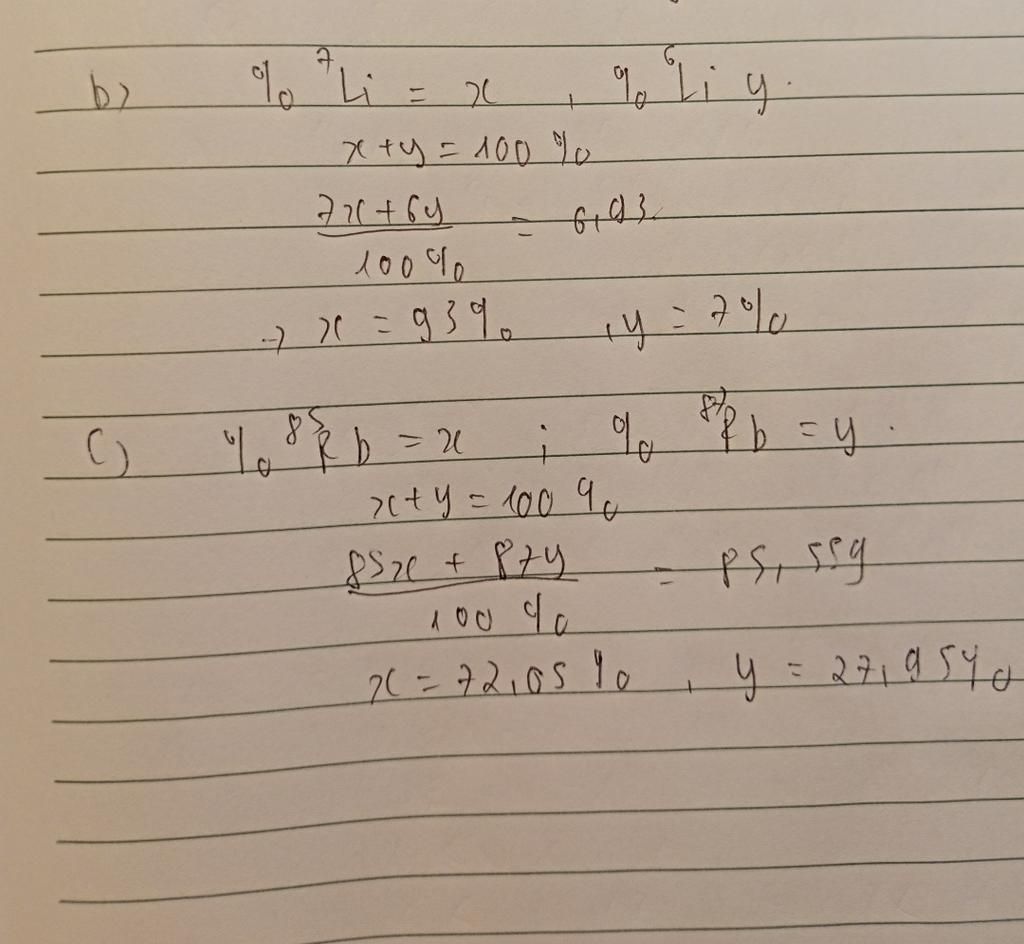 b) % ⁷Li = x , % ⁶Li y.
x + y = 100 %
7x + 6y
100 %
= 6,93
→ x = 93% , y = 7%
c) % ⁸⁵Rb = x ; % ⁸⁷Rb = y .
x + y = 100 %
85x + 87y
100 %
= 85,559
x = 72,05 % , y = 27,95%